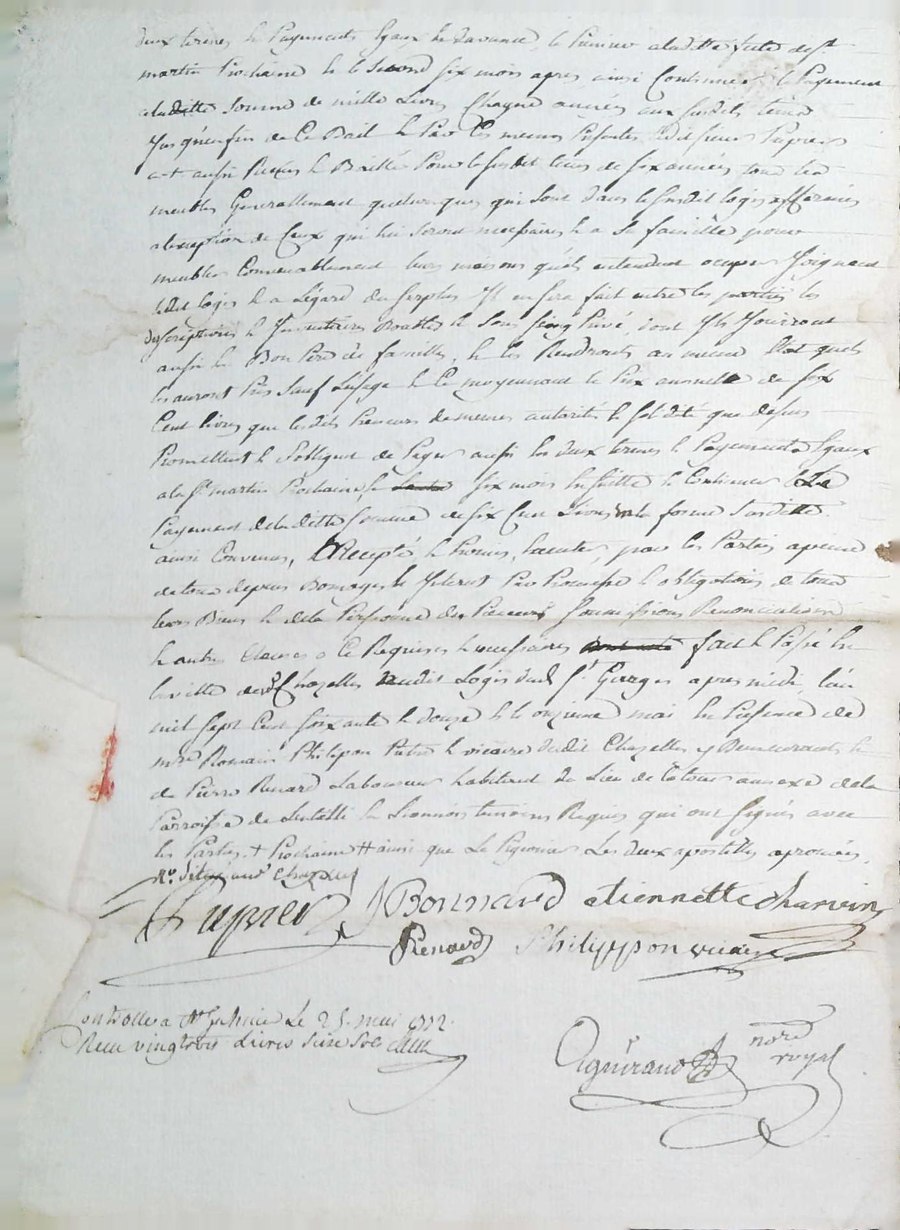 deux termes & Payements Egaux & davance, le Premier a laditte fete de st
martin Prochaine & le Second six mois apres, ainsi Continuer le Payement
de laditte Somme de mille Livres Chaque années aux susdits termes
Jusqu'enfin de Ce Bail & Par Ces memes Presentes ledit sieur Dupuier
a aussi & Baillé Pour le susdit tems de six années tous les
meubles Generallement quelconques qui sont dans le susdit logis
a lexception de Ceux qui lui seront necessaires & a sa famille pour
meubler Convenablement leurs maisons qu'ils entendent occuper Joignant
ledit logis & a Légard du surplus Il en sera fait entre les parties les
descriptions & Inventaires double & sous seing Privé, dont Ils Jouiront
aussi en Bon Pere de familles, & les Rendronts au meme Etat quils
les auront Pris sauf Lusage & Ce moyennant le Prix annuelle de six
Cent livres que lesdits Preneurs de memes autorité & solidité que dessus
Promettent & soblignet de Payer aussi en deux termes & Payements Egaux
a la st martin Prochaine, & six mois Ensuitte & Continuer Le
Payement de laditte somme de six Cent Livres en la forme susditte.
ainsi Convenus, & Recepté & Promis, par les Parties a peine
de tous depens Domages & Interest Par & obligations de tous
leurs Biens & de la Personne des Preneurs soumissions Renonciations
& autres Clauses a Ce Requises & necessaires fait & Passé En
la ville de Chazelles audit Logis dud. st. Georges apres midi, l'an
mil sept Cent soixante & douze & le onzieme mai En Presence de
mre Romain Philipon Pretre & vicaire dudit Chazelles y Demeurant &
de Pierre Renard Laboureur habitant du Lieu de annexe de la
Parroisse de En Lionnois temoins Requis qui ont signés avec
les Parties. + Prochaine ++ ainsi que Le Pigeonier Les deux apostilles aprouvés.
Chazelles
Dupuier J Bonnard etiennette Charvin
Renard Philippon vicaire
Controlle a le 25. mai 1772.
Recu vingt trois Livres seize Sols
Aguiraud nore
royal